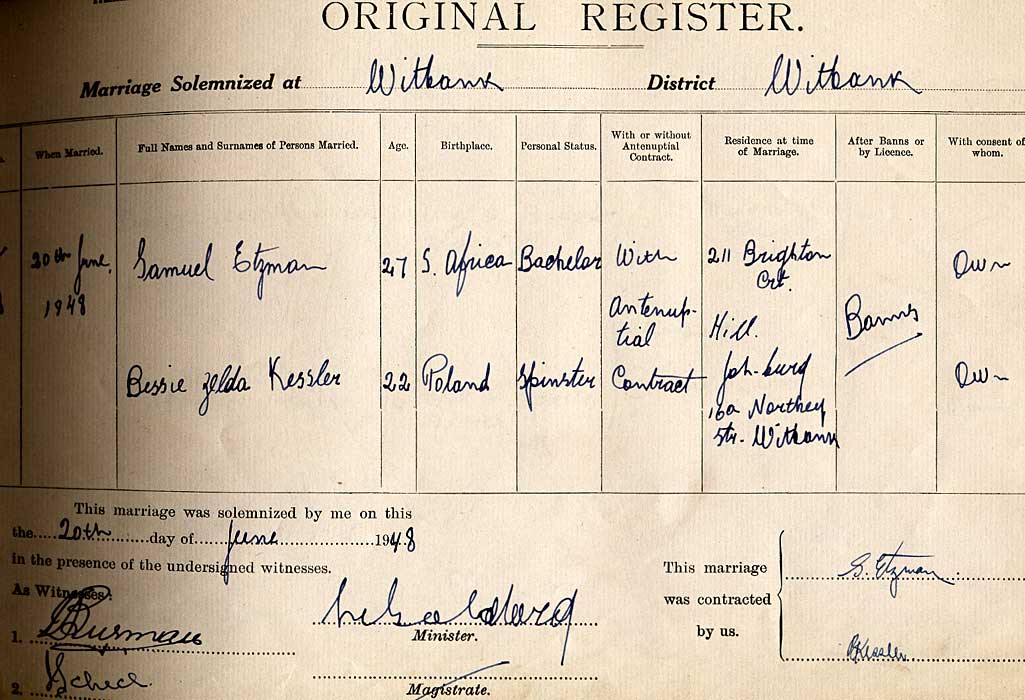 ORIGINAL REGISTER.
Marriage Solemnized at Witbank District Witbank
When Married. Full Names and Surnames of Persons Married. Age. Birthplace. Personal Status. With or without Antenuptial Contract. Residence at time of Marriage. After Banns or by Licence. With consent of whom.
20th June, 1948 Samuel Etzman 27 S. Africa Bachelor With 211 Brighton Crt. Own
Antenup-tial Hill. Banns
Bessie Zelda Kessler 22 Poland Spinster Contract Joh-burg Own
16a Northey
Str. Witbank
This marriage was solemnized by me on this
the 20th day of June 1948
in the presence of the undersigned witnesses.
As Witnesses:
This marriage S. Etzman
was contracted
by us. B Kessler
1.
Minister.
2.
Magistrate.